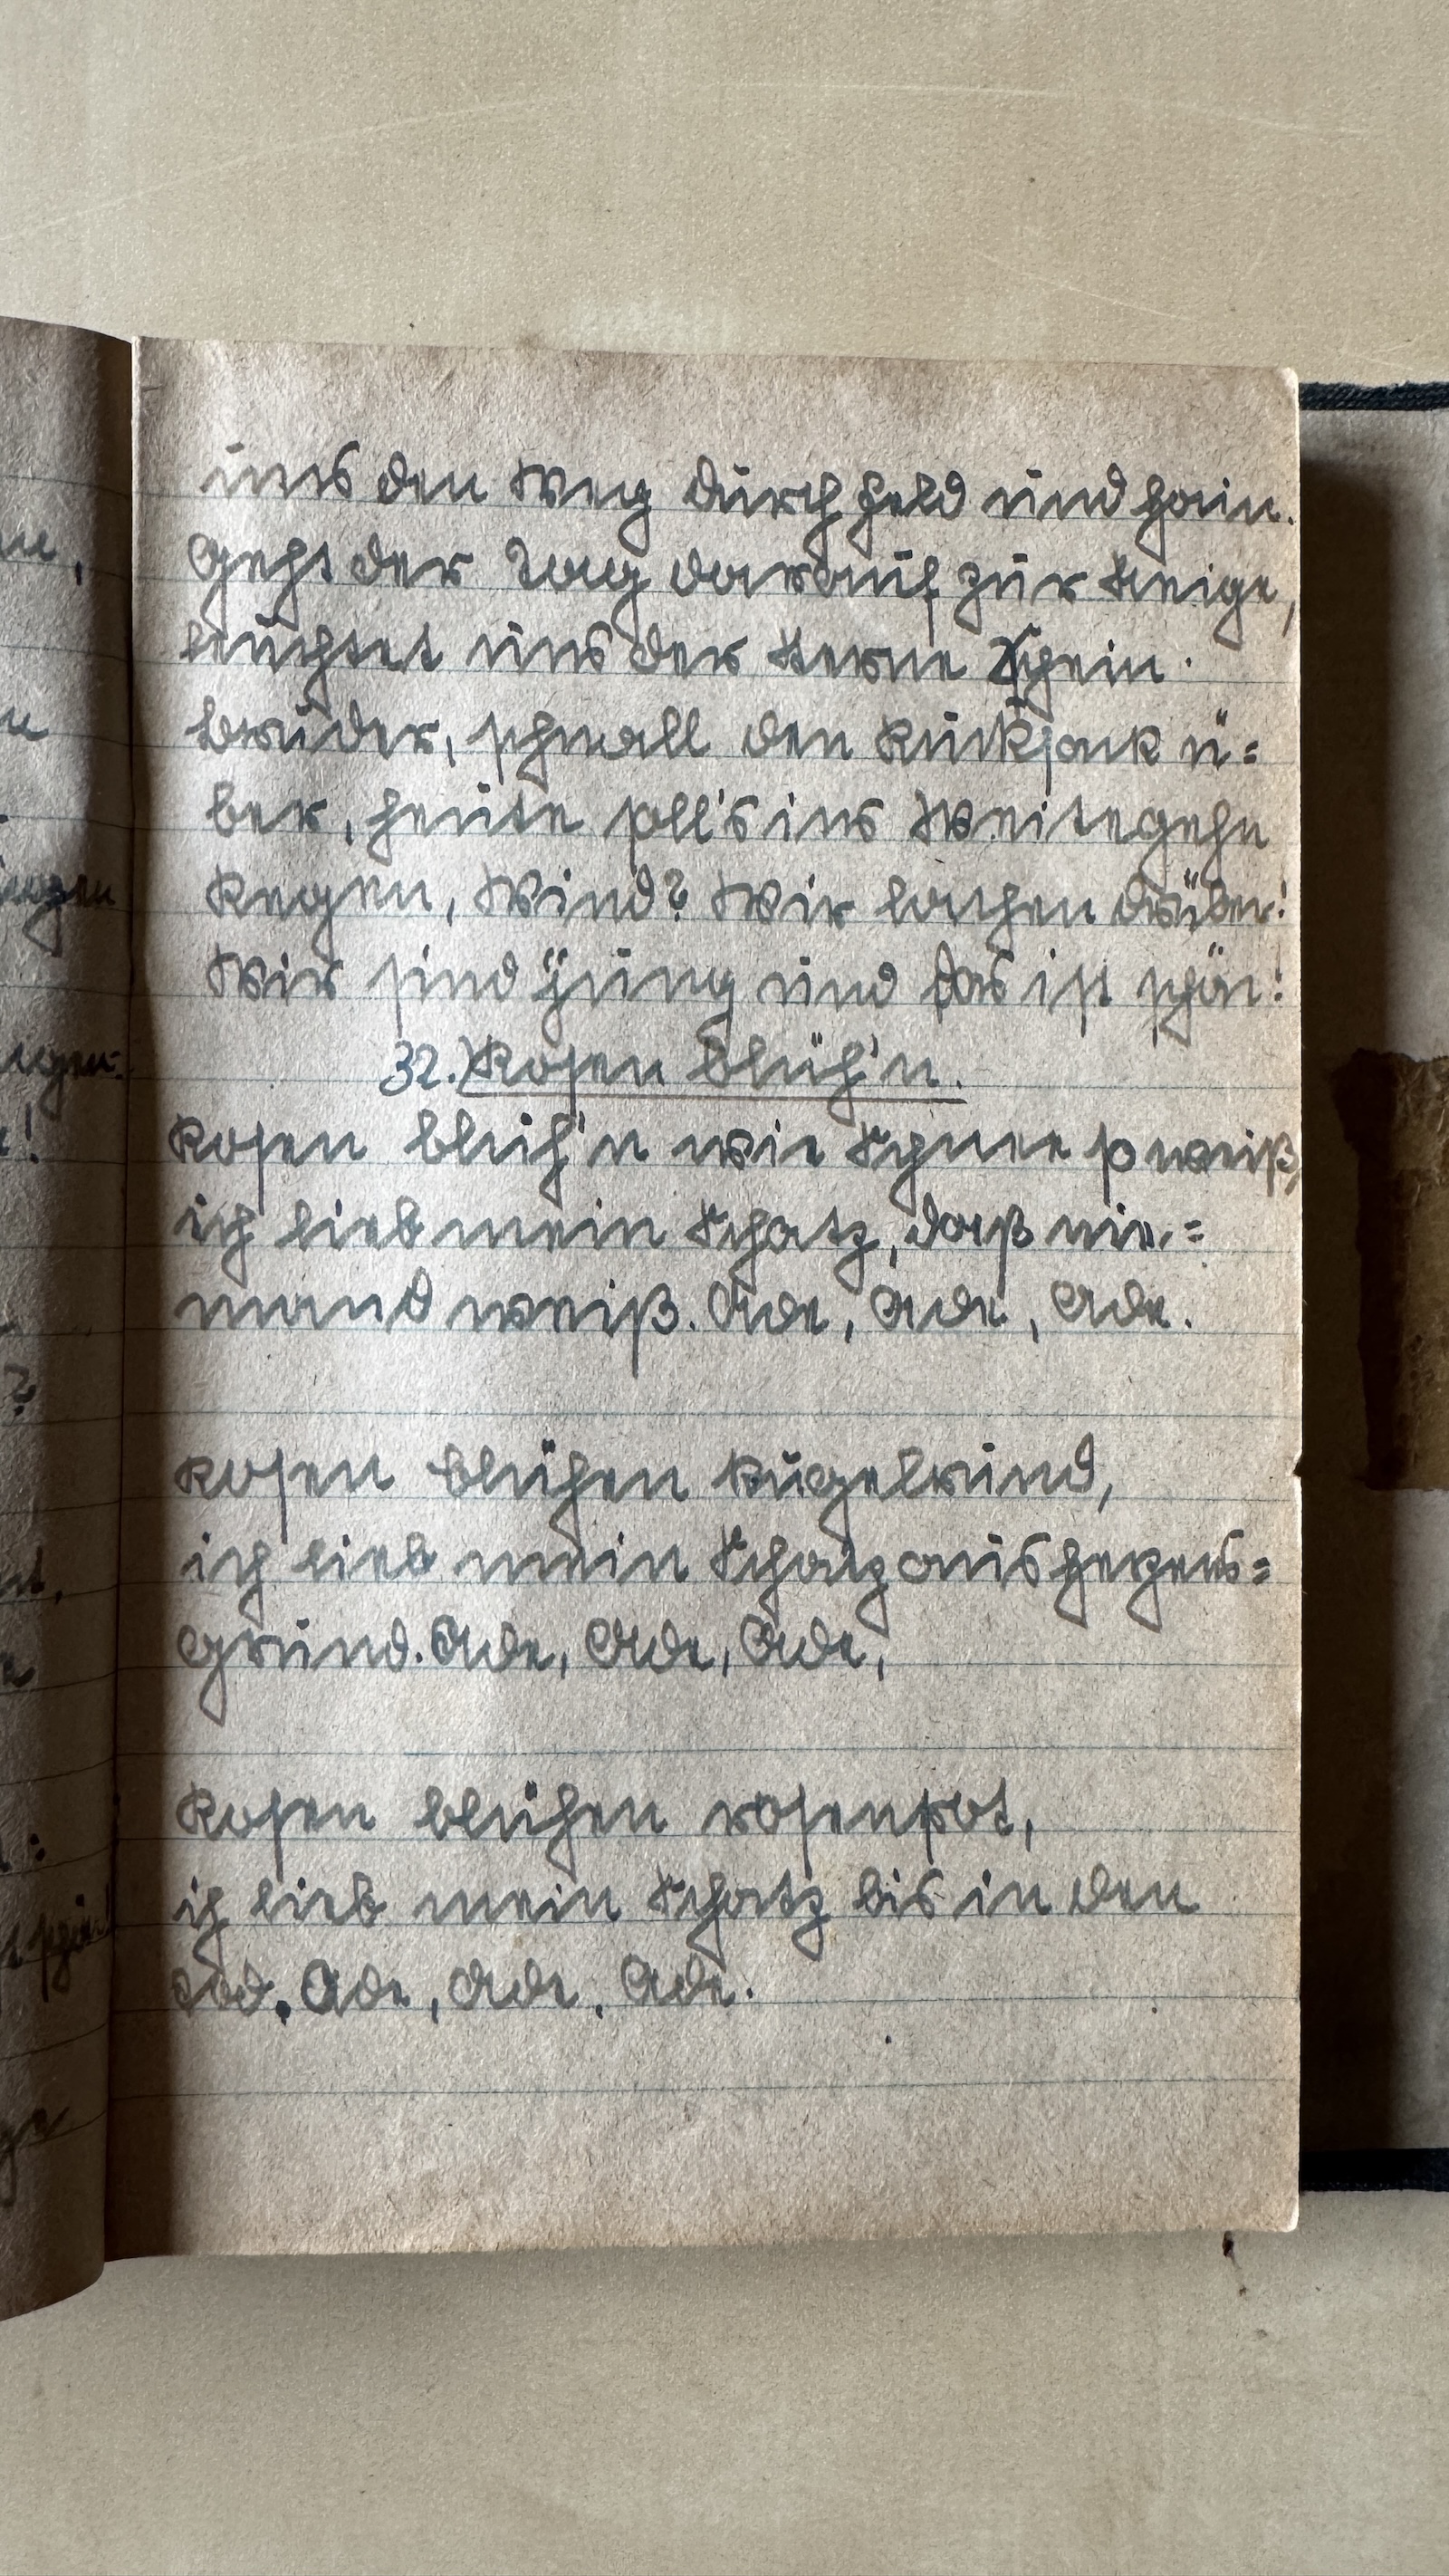 uns den Weg durch Feld und Hain.
Geht der Tag darauf zur Neige,
leuchtet uns der Sterne Schein.
Bruder, schnall den Rucksack ü=
ber, heute soll's ins Weitegehn
Regen, Wind? Wir lachen drüber!
Wir sind jung und das ist schön!
32.) Rosen blüh'n.
Rosen blüh'n wie Schnee so weiß,
ich lieb mein Schatz, daß nie=
mand weiß. Ade, Ade, Ade.
Rosen blühen kugelrund,
ich lieb mein Schatz aus Herzens=
grund. Ade, Ade, Ade,
Rosen blühen rosenrot,
ich lieb mein Schatz bis in den
Tod. Ade, Ade, Ade.